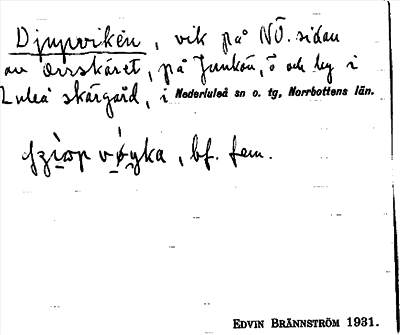 Djupviken, vik på NÖ. sidan
av Orrskäret, på Junkön, ö och by i
Luleå skärgård, i Nederluleå sn o. tg, Norrbottens län.
, bf. fem.
EDVIN BRÄNNSTRÖM 1931.